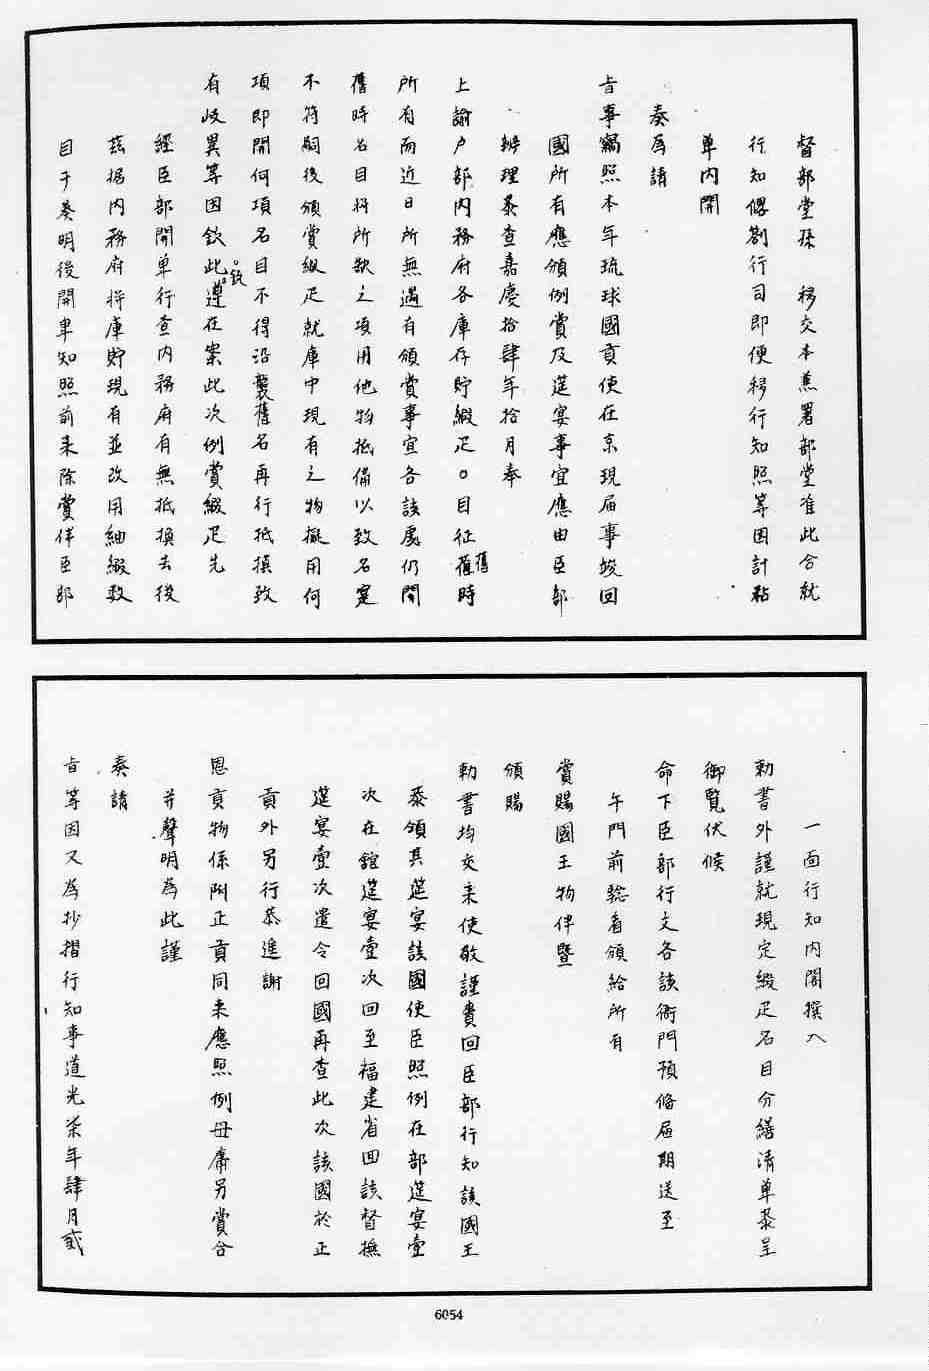 督部堂孫　移交本兼署部堂准此合就
行知備劄行司即便移行知照等因計粘
單内開
奏爲請
旨事竊照本年琉球國貢使在京現届事竣回
國所有應頒例賞及筵宴事宜應由臣部
辦理恭查嘉慶拾肆年拾月奉
上諭户部内務府各庫存貯緞疋。目征舊時
舊
所有而近日所無遇有頒賞事宜各該處仍開
舊時名目将所缺之項用他物抵備以致名寔
不符嗣後頒賞緞疋就庫中現有之物擬用何
項即開何項名目不得沿襲舊名再行抵換致
有歧異等因欽此遵在案此次例賞緞疋先
。欽。
經臣部開單行查内務府有無抵換去後
茲据内務府将庫貯現有並改用紬緞数
目于奏明後開单知照前来除賞件臣部
一面行知内閣撰入
勅書外謹就現定緞疋名目分繕清单恭呈
御覧伏候
命下臣部行文各該衙門預備届期送至
午門前驗看頒給所有
賞賜國王物件暨
頒賜
勅書均交来使敬謹賫回臣部行知該國王
恭領其筵宴該國使臣照例在部筵宴壹
次在舘筵宴壹次回至福建省回該督撫
筵宴壹次遣令回國再查此次該國於正
貢外另行恭進謝
恩貢物係附正貢同来應照例毋庸另賞合
并聲明為此謹
奏請
旨等因又為抄摺行知事道光柒年肆月貳
6054